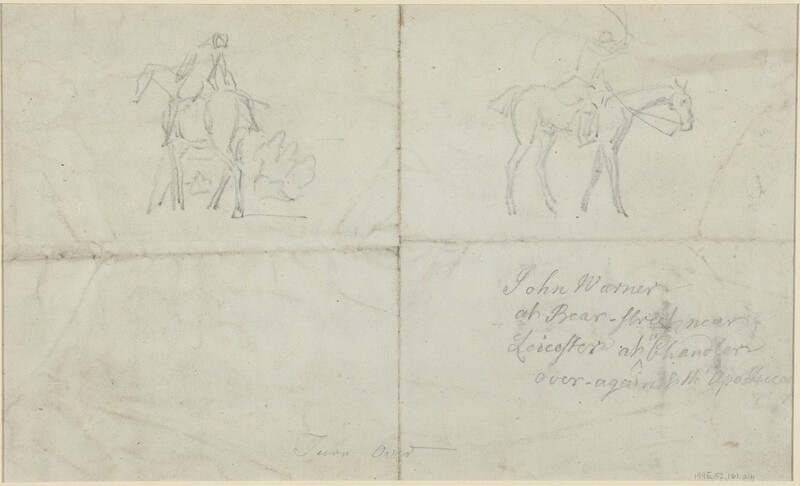 John Warner
at Bear-street near
Leicester at a Chandler
over-against th Apothecar
Turn Over